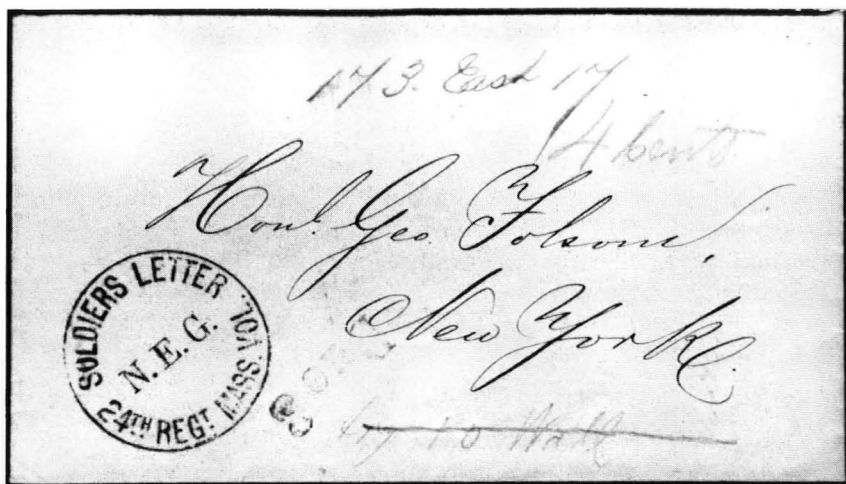 173. East 17
14 cents
Honl. Geo. Folsom,
New York.
SOLDIERS LETTER
N.E.G.
24TH REGT. MASS. VOL.
Wall